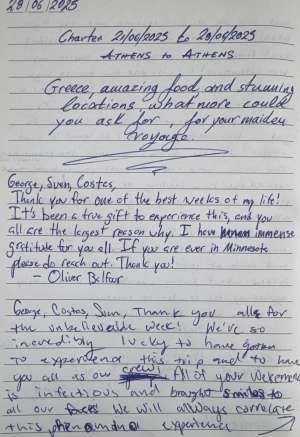 28/06/2025
Charter 21/06/2025 to 28/06/2025
ATHENS to ATHENS
Greece, amazing food, and stunning
locations, what more could
you ask for, for your maiden
voyage.
George, Sven, Costas,
Thank you for one of the best weeks of my life!
It's been a true gift to experience this, and you
all are the largest reason why. I have immense
gratitude for you all. If you are ever in Minnesota
please do reach out. Thank you!
- Oliver Belfour
George, Costas, Sven, Thank you all for
the unbelievable week! We've so
incredibly lucky to have gotten
to experience this trip and to have
you all as our crew! All of your
is infectious and brought smiles to
all our faces We will always correlate
this phenomenal experience